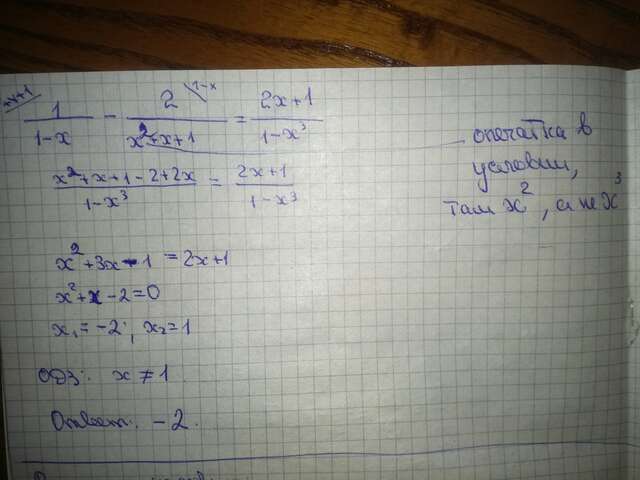 1/(1-x) - 2/(x²+x+1) \1-x = (2x+1)/(1-x³)
(x²+x+1-2+2x)/(1-x³) = (2x+1)/(1-x³)
x²+3x-1 = 2x+1
x²+x-2=0
x₁=-2; x₂=1
ОДЗ: x≠1
Ответ: -2.
опечатка в
условии,
там x², а не x³